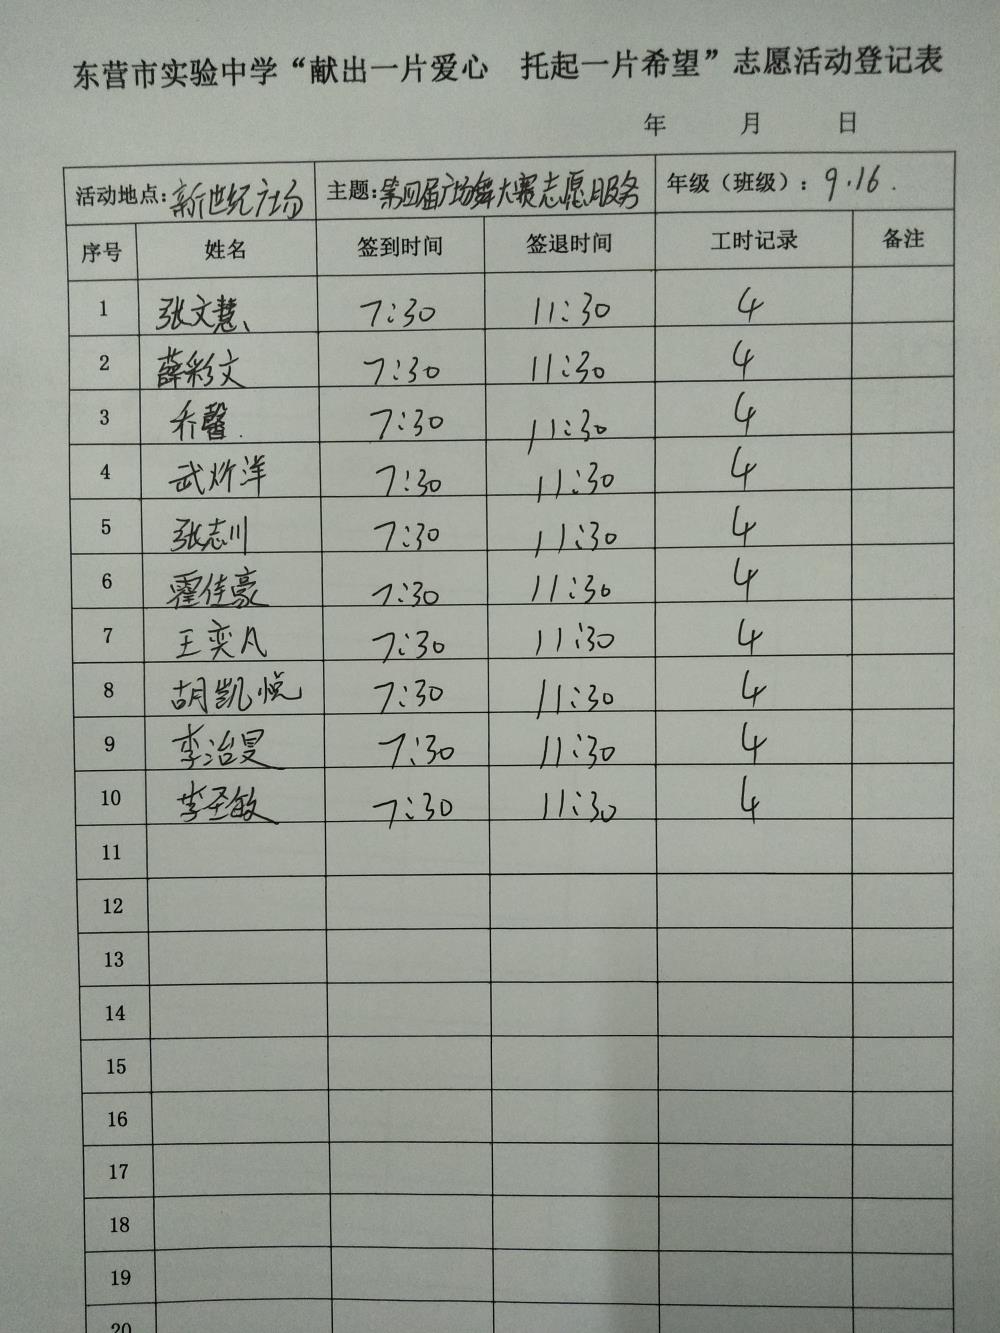 东营市实验中学“献出一片爱心 托起一片希望”志愿活动登记表
年 月 日
活动地点：新世纪广场 主题：第四届广场舞大赛志愿服务 年级（班级）：9.16.
序号 姓名 签到时间 签退时间 工时记录 备注
1 张文慧 7:30 11:30 4
2 薛彩文 7:30 11:30 4
3 乔馨 7:30 11:30 4
4 武炘洋 7:30 11:30 4
5 张志川 7:30 11:30 4
6 霍佳豪 7:30 11:30 4
7 王奕凡 7:30 11:30 4
8 胡凯悦 7:30 11:30 4
9 李治旻 7:30 11:30 4
10 李圣敏 7:30 11:30 4
11
12
13
14
15
16
17
18
19
20